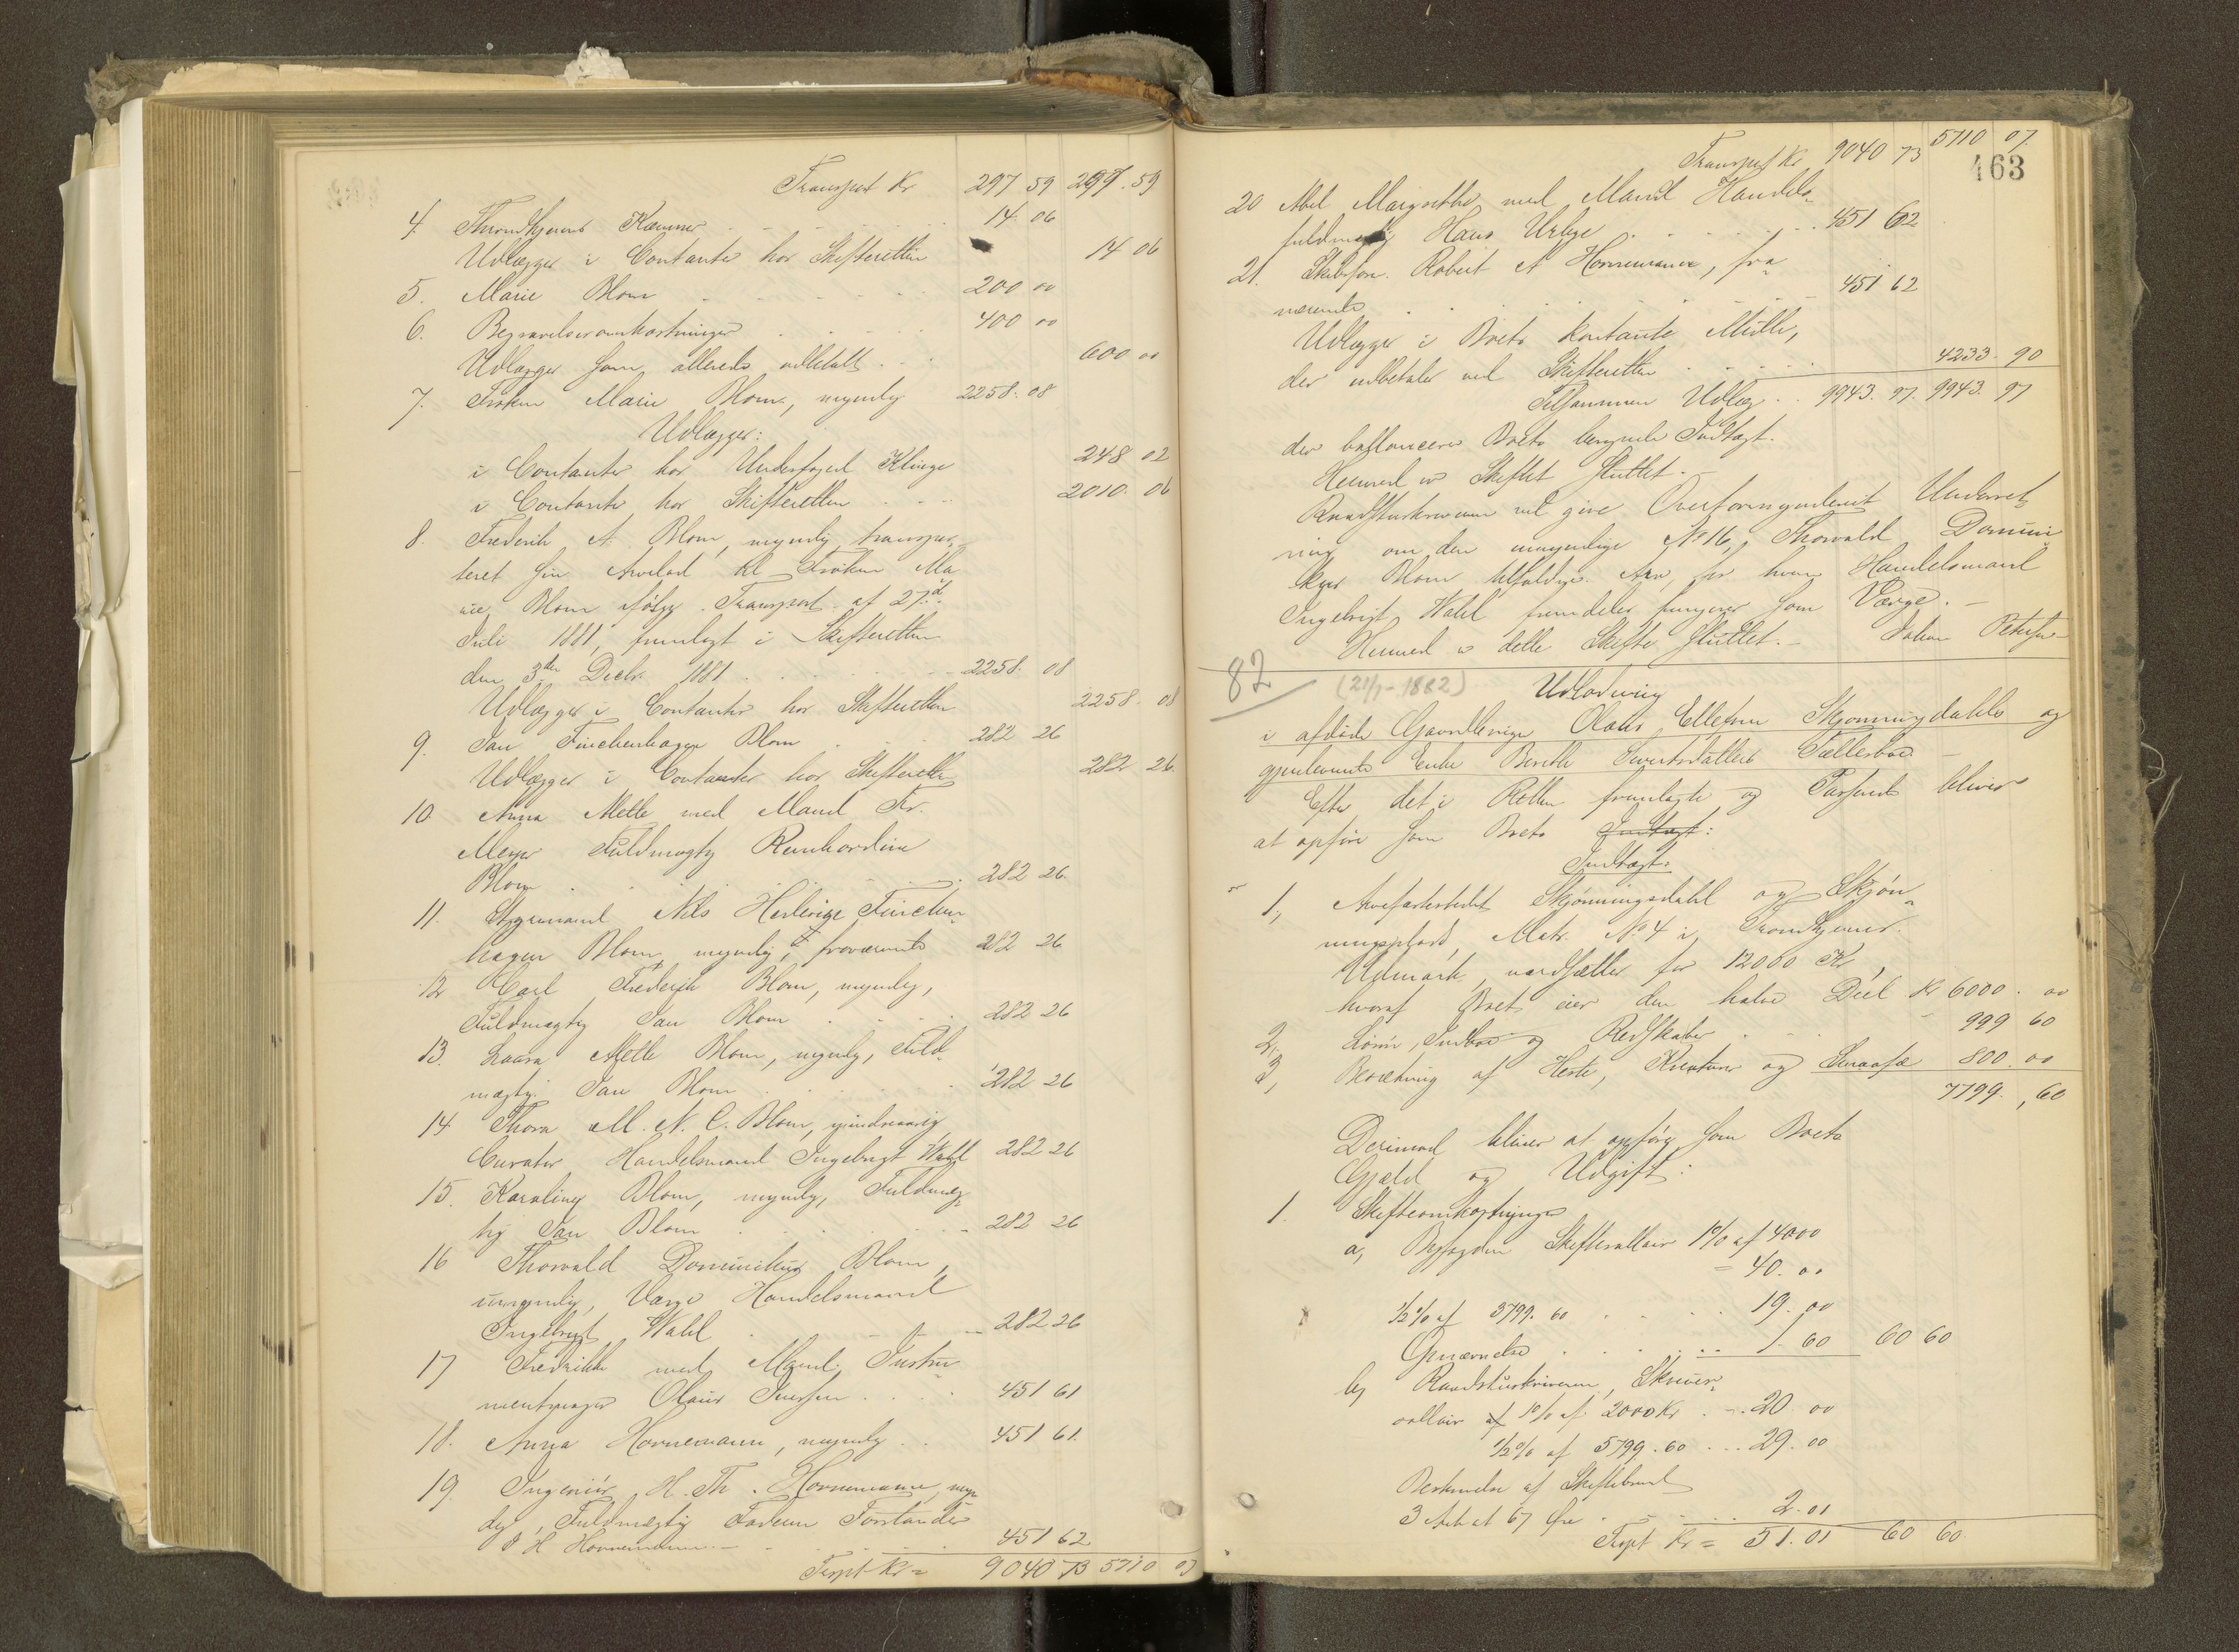 Transport Kr 297 59 297.59
4. Throndhjems Kæmner 14.06
Udlægges i Contanter hos Skifteretten 14 06
5. Marie Blom 200 00
6. Begravelsesomkostninger 400 00
Udlægges som allerede udbetalt 600 00
7. Frøken Marie Blom, myndig 2258.08
Udlægges:
i Contanter hos Undersøgnd Klinge 248 02
i Contante hos Skifteretten 2010.06
8. Frederik A. Blom, myndig transpor-
teret sin Arvelod til Frøken Ma
rie Blom ifølge Transport af 27d
Juli 1881, fremlagt i Skifteretten
den 3die Decbr. 1881 2258.08
Udlægges i Contanter hos Skifteretten 2258.08
9. Jan Finchenhagen Blom 282 26
Udlægges i Contanter hos Skifteretten 282 26.
10 Anna Mette med Mand Fr.
Meyer Fuldmægtig
Blom 282 26.
11. Styrmand Nils Finchen-
hagen Blom, myndig, fraværende 282 26
12 Carl Frederik Blom, myndig,
Fuldmægtig Jan Blom 282 26
13. Laura Mette Blom, myndig, Fuld-
mægtig Jan Blom 282 26
14 Thora M. N. C. Blom, mindreaarig
Curator Handelsmand Ingebrigt Wahl 282 26
15. Karoline Blom, myndig, Fuldmæg-
tig Jan Blom 282 26
16 Thorvald Dominikus Blom,
umyndig, Værge Handelsmand
Ingebrigt Wahl 282 26
17 Fredrikke med Mand Instru
mentmager Olaus Iversen 451 61
18. Anna Hornemann, myndig 451 61.
19. Ingeniør H. Th. Hornemann, myn
dig, Fuldmægtig Faderen Forstander
Hornemann 451 62
Trspt Kr = 9040 73 5710 07
Transport Kr 9040 73 5710 07.
463
20 Abel Margrethe med Mand Handels-
fuldmægtig Hans 451 62
21. Robert A Hornemann, fra-
værende 451 62
Udlægges i Boets kontante Midler,
der udbetales ved Skifteretten 4233.90
Tilsammen Udlæg 9943.97. 9943.97
der ballancerer Boets beregnede Indtægt.
Hermed er Skiftet sluttet.
Raadstuskriveren vil give Overformynderiet Underret-
ning om den umyndige No 16, Thorvald Domini
kus Blom tilfaldne Arv, for hvem Handelsmand
Ingebrigt Wahl fremdeles fungerer som Værge.
Hermed er dette Skifte sluttet. Johan Petersen
82 (21/1-1882) Udlodning
i afdøde Olaus Ellefsen Skjønningsdahls og
gjenlevende Enke Berethe Sivertsdatters Fællesbo
Efter det i Retten fremlagte og Passerede bliver
at opføre som Boets Indtægt:
Indtægt:
1, Arvefæstestedet Skjønningsdahl og Skjøn-
ningsplads, Matr. No 4 i Trondhjems
Udmark, værdsættes for 12000 Kr,
hvoraf Boet eier den halve Deel Kr 6000.00
2, Løsøre, Indbo og Redskaber 999 60
3, Besætning af Heste, Kreaturer og Smaafæ 800.00
7799.,60
Derimod bliver at opføre som Boets
Gjæld og Udgift:
1. Skifteomkostninger
a, Byfogden Skiftesallair 1% af 4000
= 40.00
1/2% af 3799.60 19.00
Opnævnelse 1.60 60 60
b, Raadstuskriveren, Skriver-
sallair af 1% af 2000 Kr 20.00
1/2% af 5799.60 29.00
Beskrivelse af Skiftebrevet
3 Ark at 67 Øre 2.01
Trspt Kr = 51.01 60 60